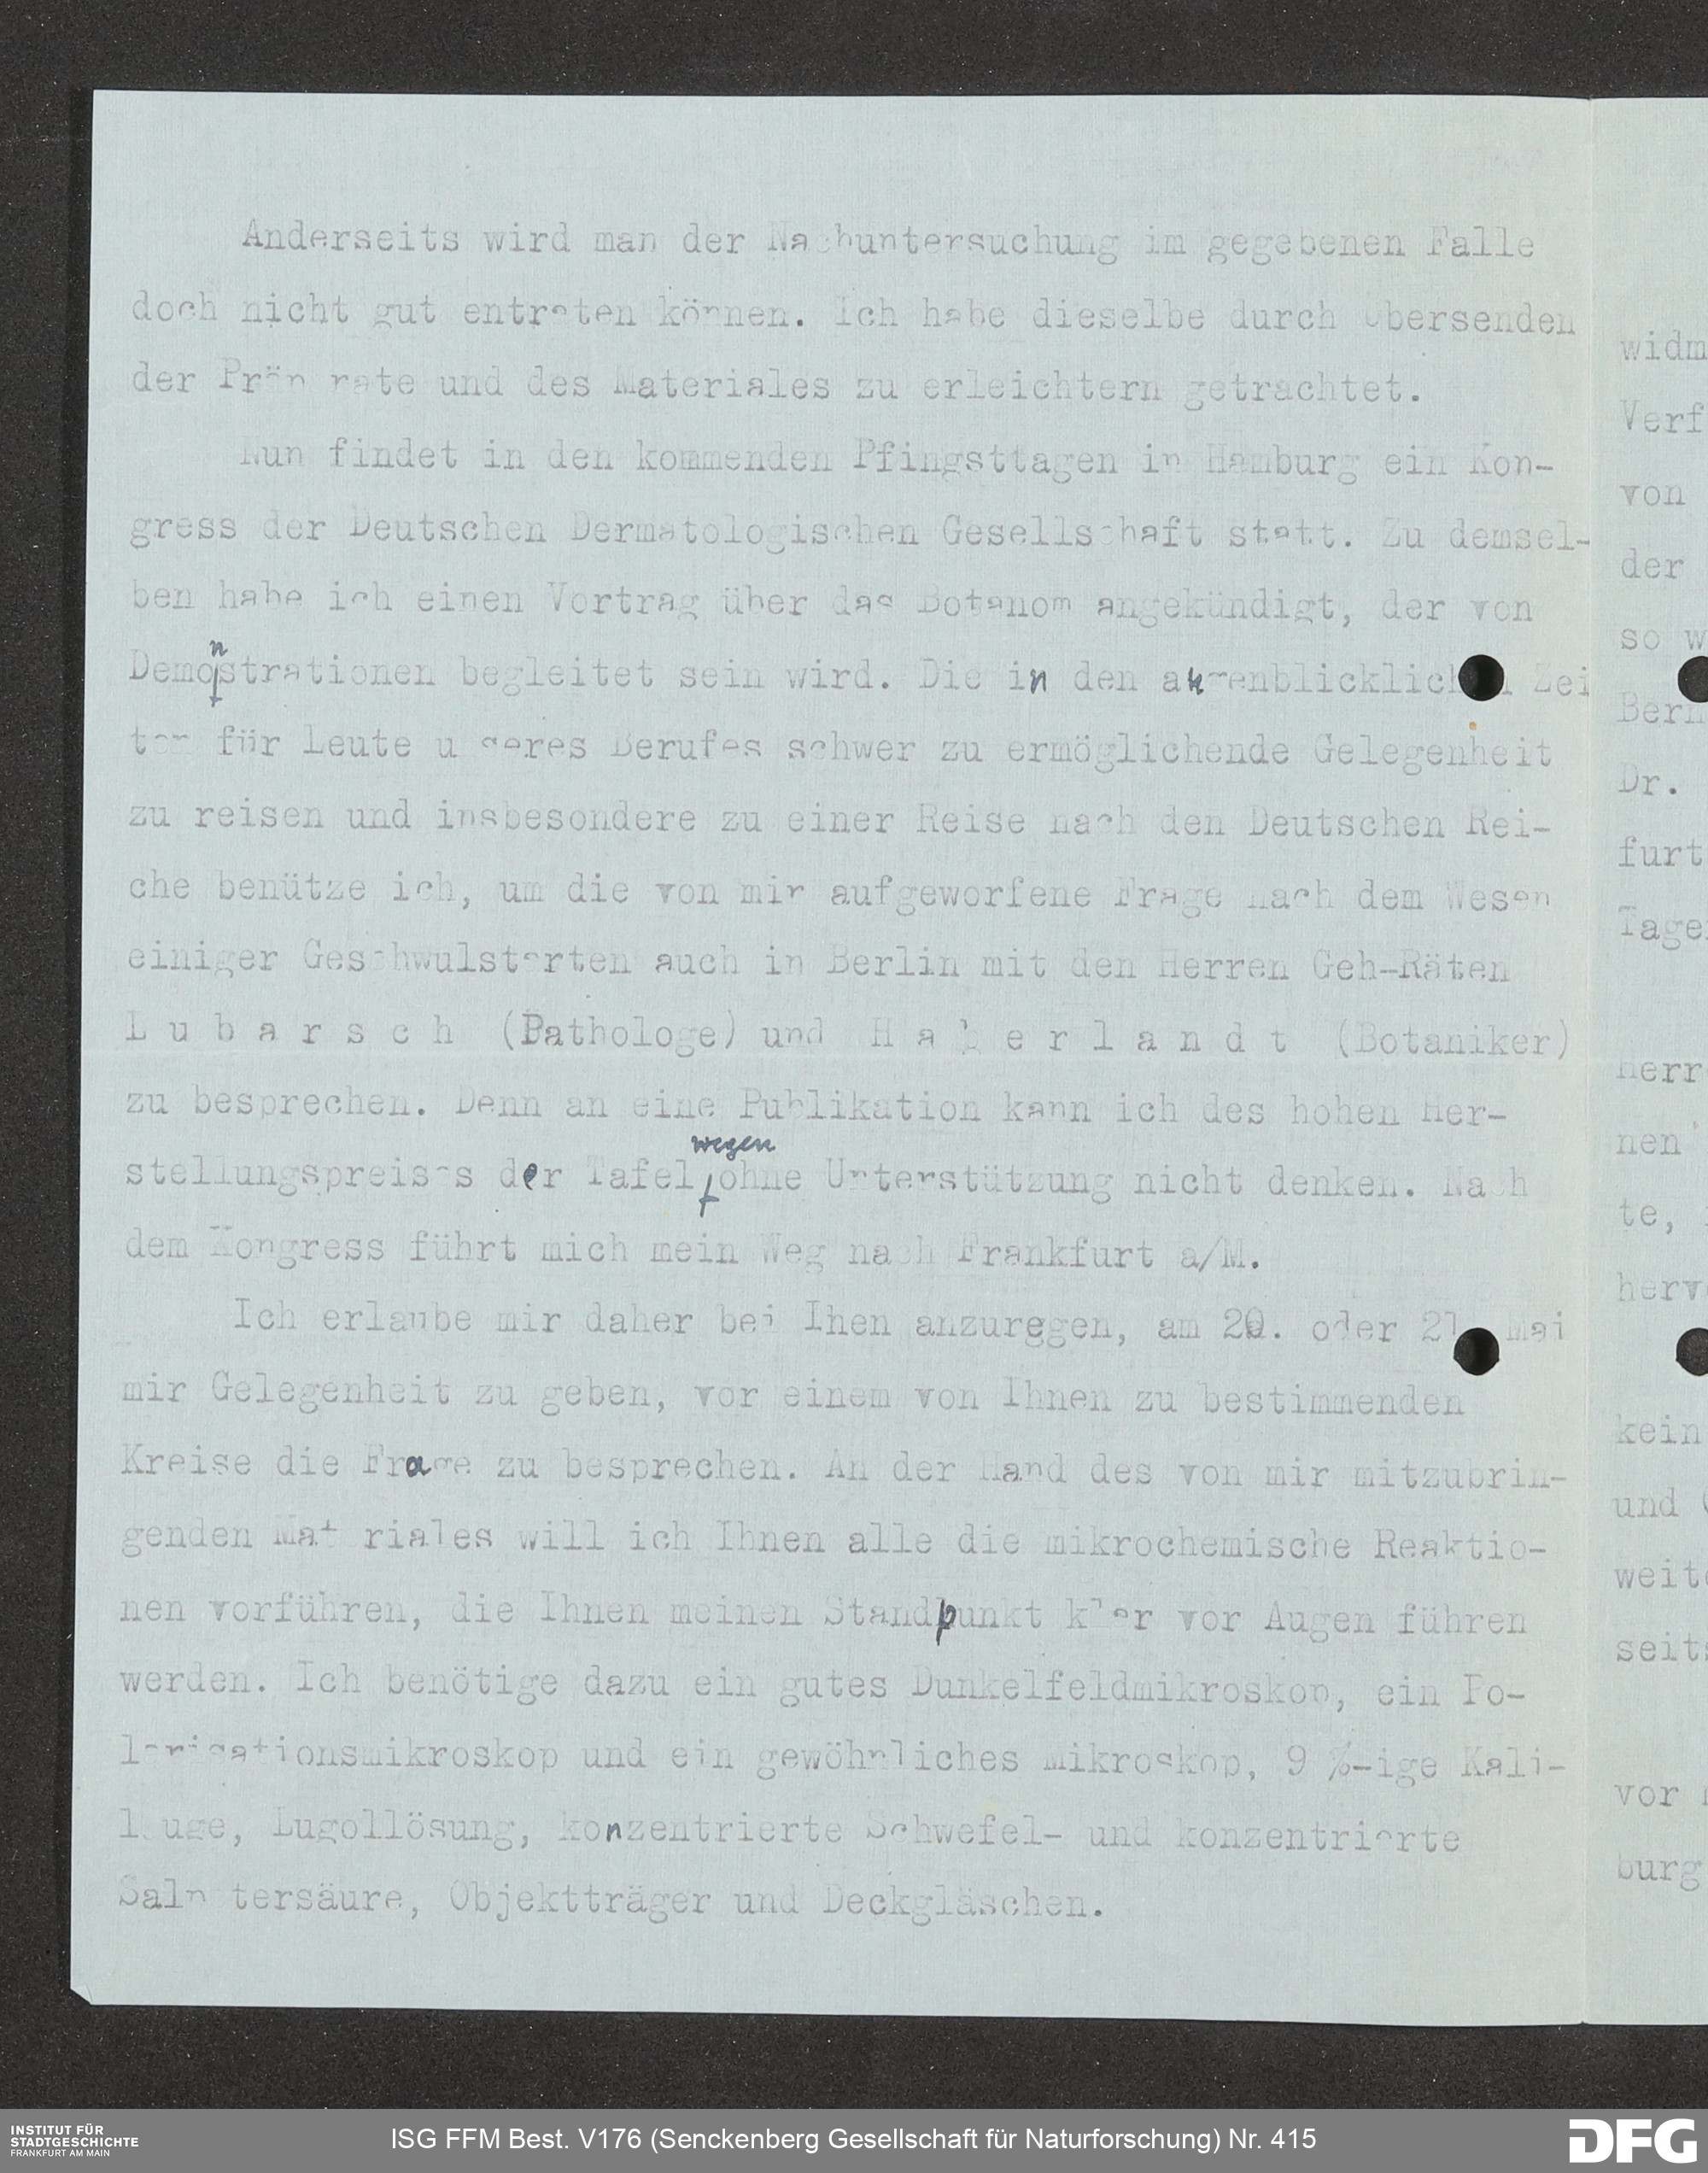 Anderseits wird man der Nachuntersuchung im gegebenen Falle
doch nicht gut entraten können. Ich habe dieselbe durch Übersenden
der Präparate und des Materiales zu erleichtern getrachtet.
Nun findet in den kommenden Pfingsttagen in Hamburg ein Kon-
gress der Deutschen Dermatologischen Gesellschaft statt. Zu demsel-
ben habe ich einen Vortrag über das Botanom angekündigt, der von
Demonstrationen begleitet sein wird. Die in den augenblicklichen Zei
ten für Leute unseres Berufes schwer zu ermöglichende Gelegenheit
zu reisen und insbesondere zu einer Reise nach den Deutschen Rei-
che benütze ich, um die von mir aufgeworfene Frage nach dem Wesen
einiger Geschwulstarten auch in Berlin mit den Herren Geh-Räten
L u b a r s c h (Pathologe) und H a b e r l a n d t (Botaniker)
zu besprechen. Denn an eine Publikation kann ich des hohen Her-
stellungspreises der Tafel wegen ohne Unterstützung nicht denken. Nach
dem Kongress führt mich mein Weg nach Frankfurt a/M.
Ich erlaube mir daher bei Ihen anzuregen, am 20. oder 21. Mai
mir Gelegenheit zu geben, vor einem von Ihnen zu bestimmenden
Kreise die Frage zu besprechen. An der Hand des von mir mitzubrin-
genden Materiales will ich Ihnen alle die mikrochemische Reaktio-
nen vorführen, die Ihnen meinen Standpunkt klar vor Augen führen
werden. Ich benötige dazu ein gutes Dunkelfeldmikroskop, ein Po-
larisationsmikroskop und ein gewöhnliches Mikroskop, 9 %-ige Kali-
lauge, Lugollösung, konzentrierte Schwefel- und konzentrierte
Salpetersäure, Objektträger und Deckgläschen.
widm
Verf
von
der
so w
Bern
Dr.
furt
Tage
herr
nen
te,
herv
kein
und
weit
seits
vor
burg
INSTITUT FÜR
STADTGESCHICHTE
FRANKFURT AM MAIN
ISG FFM Best. V176 (Senckenberg Gesellschaft für Naturforschung) Nr. 415
DFG